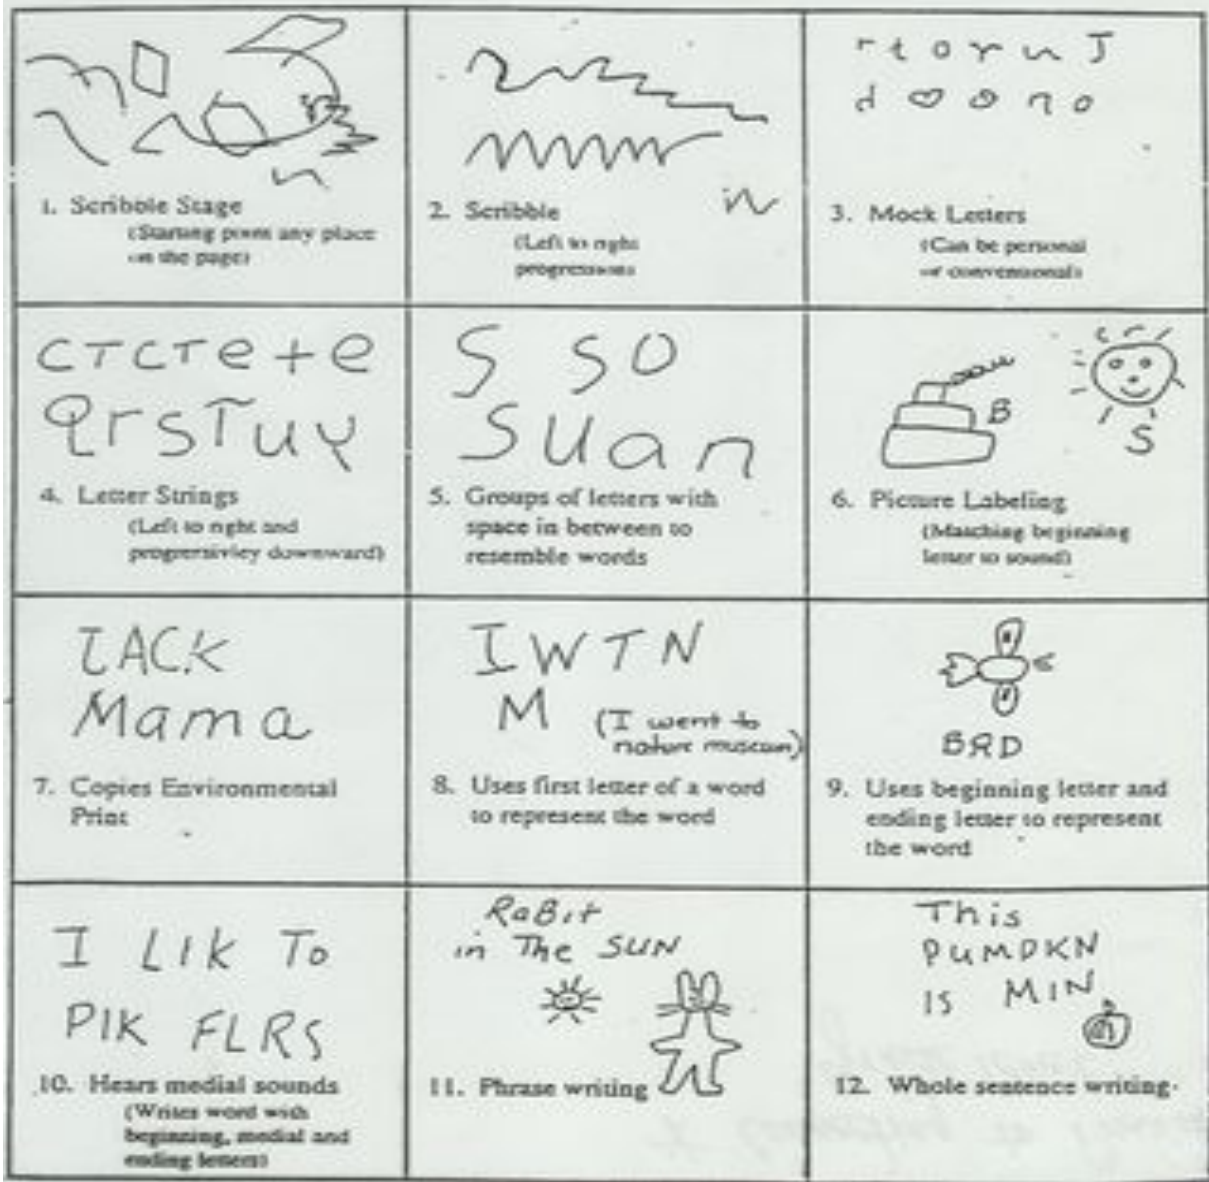 r t o r u n J
d o o n o
1. Scribble Stage
(Starting point any place
on the page)
2. Scribble
(Left to right
progression)
3. Mock Letters
(Can be personal
or conventional)
CTCTe+e
QrsTuy
4. Letter Strings
(Left to right and
progressivley downward)
S SO
SUan
5. Groups of letters with
space in between to
resemble words
B
S
6. Picture Labeling
(Matching beginning
letter to sound)
ZACK
Mama
7. Copies Environmental
Print
I W T N
M (I went to
nature museum)
8. Uses first letter of a word
to represent the word
BRD
9. Uses beginning letter and
ending letter to represent
the word
I LIK To
PIK FLRS
10. Hears medial sounds
(Writes word with
beginning, medial and
ending letters)
RaBit
in The SUN
11. Phrase writing
This
PUMPKN
IS MIN.
12. Whole sentence writing.